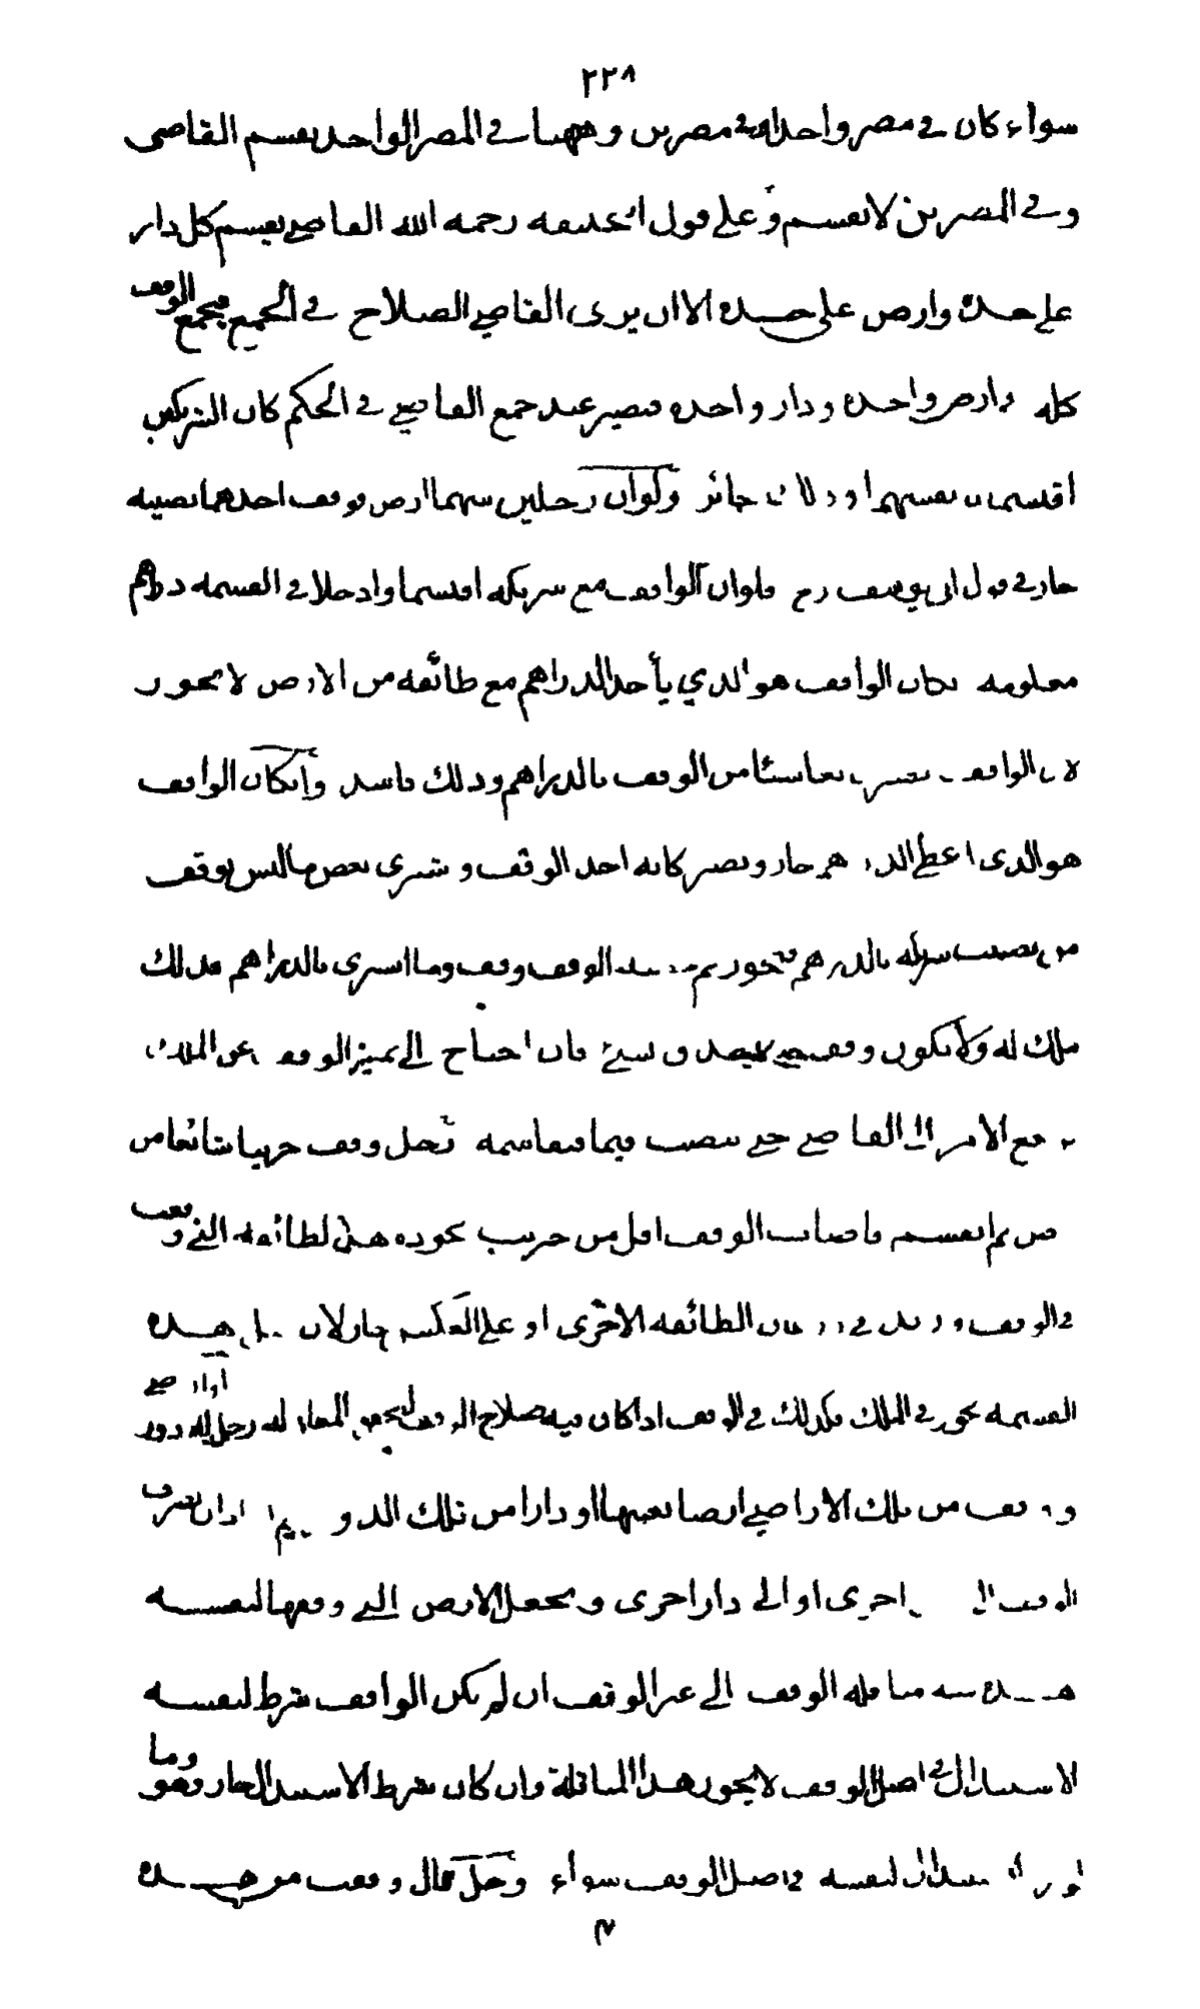 ٢٢٨
سواء كان في مصر واحد او في مصرين وههنا في المصر الواحد يقسم القاضي
وفي المصرين لا يقسم وعلى قول ابي حنيفه رحمه الله القاضي يقسم كل دار
على حدة وارض على حده الا ان يرى القاضي الصلاح في الجميع فيجمع الوقف
كله وارض واحدة ودار واحده فيصير عند جمع القاضي في الحكم كان الشريكين
اقتسما بانفسهما وذلك جائز ولو ان رجلين بينهما ارض فوقف احدهما نصيبه
جاز في قول ابي يوسف رح فلو ان الواقف مع شريكه اقتسما وادخلا في القسمه دراهم
معلومه فكان الواقف هو الذي يأخذ الدراهم مع طائفه من الارض لا يجوز
لان الواقف يصير بايعا شيئا من الوقف بالدراهم وذلك فاسد وان كان الواقف
هو الذي اعطى الدراهم جاز ويصير كانه اخذ الوقف وشرى بعض ما ليس بوقف
من نصيب شريكه بالدراهم فيجوز ثم الوقف وقف وما اشترى بالدراهم فذلك
ملك له ولا يكون وقف فان احتاج الى تمييز الوقف عن الملك
يرفع الامر الى القاضي حتى ينصب قيما فيقاسمه رجل وقف جريبا شائعا من
ارض ثم اقتسم فاصاب الوقف اقل من جريب لجوده هذه الطائفه التي وقعت
في الوقف وزيد في ذرعان الطائفه الاخرى او على العكس جاز لان مثل هذه
القسمه يجوز في الملك فكذلك في الوقف اذا كان فيه صلاح الوقف رجل له دور واراضي
ووقف من تلك الاراضي ارضا بعينها او دارا من تلك الدور ثم اراد ان يصرف
الوقف الى اخرى او الى دار اخرى ويجعل الارض التي وقفها لنفسه
هذه مناقله الوقف الى غير الوقف ان لم يكن الواقف شرط لنفسه
الاستبدال في اصل الوقف لا يجوز هذا المناقلة وان كان شرط الاستبدال جاز وهو وما
لو استبدال لنفسه في اصل الوقف سواء رجل قال وقفت من هذه